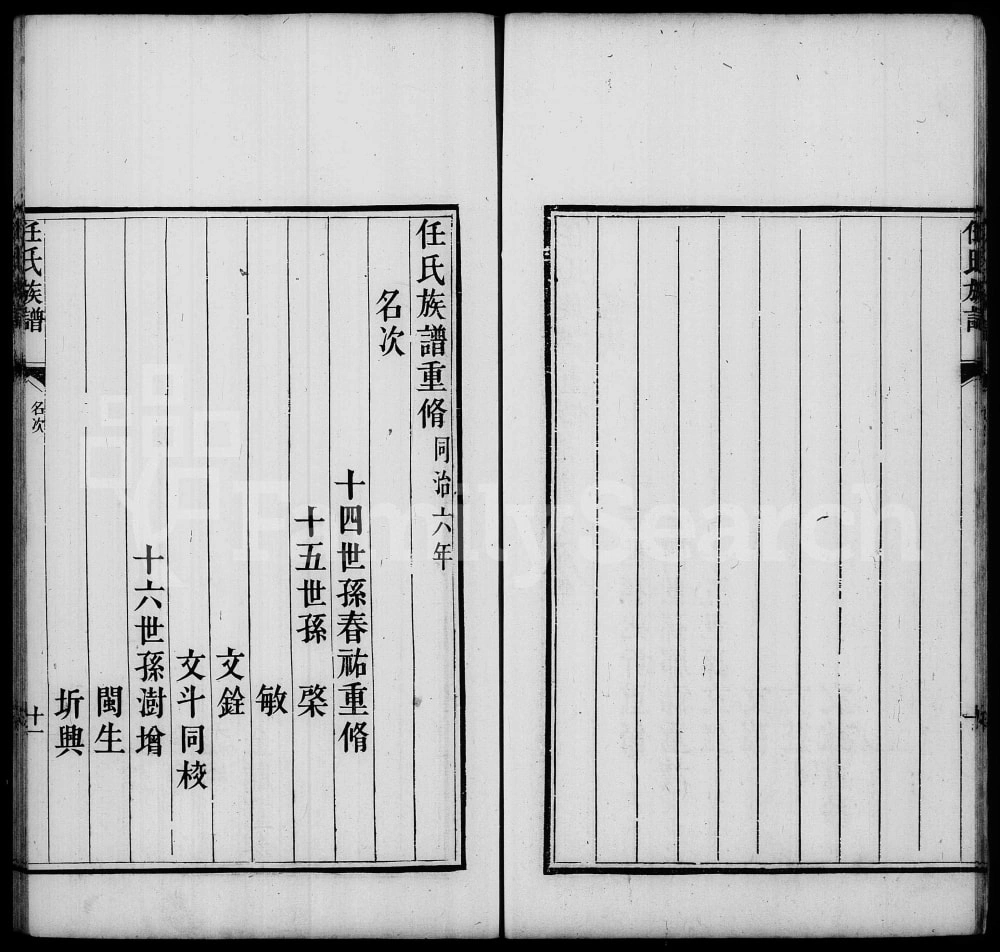 任氏族譜
任氏族譜重脩 同治六年
名次
十四世孫春祐重脩
十五世孫 棨
敏
文銓
文斗同校
十六世孫澍增
閩生
圻興
任氏族譜
名次
十一
FamilySearch